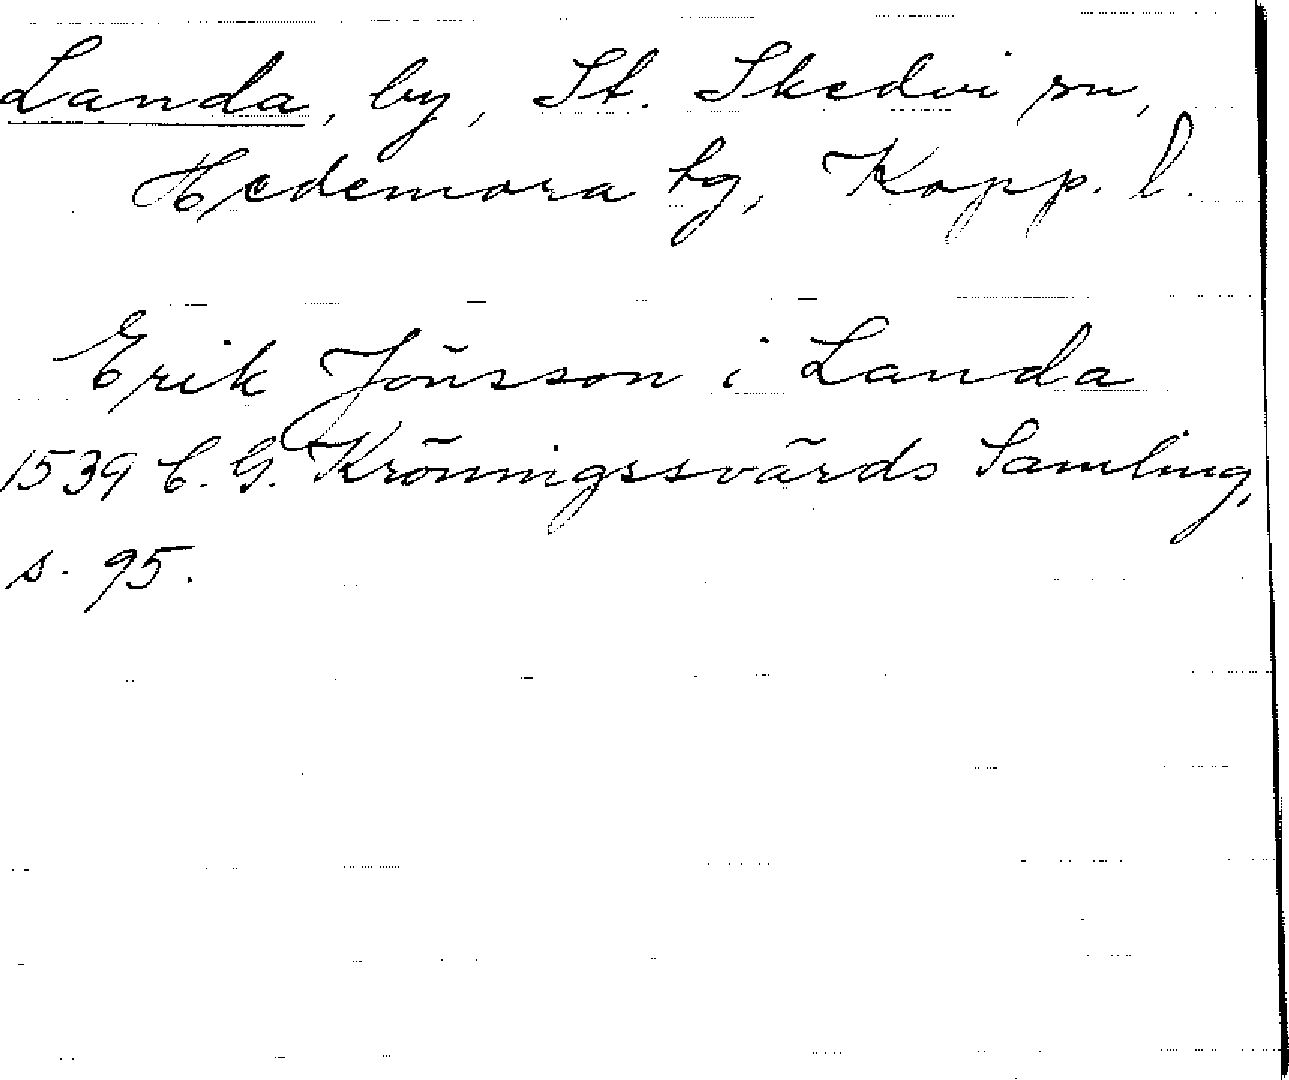 Landa, by, St. Skedvi sn,
Hedemora tg, Kopp. l.
Erik Jönsson i Landa
1539 C. G. Kröningssvärds Samling,
s. 95.